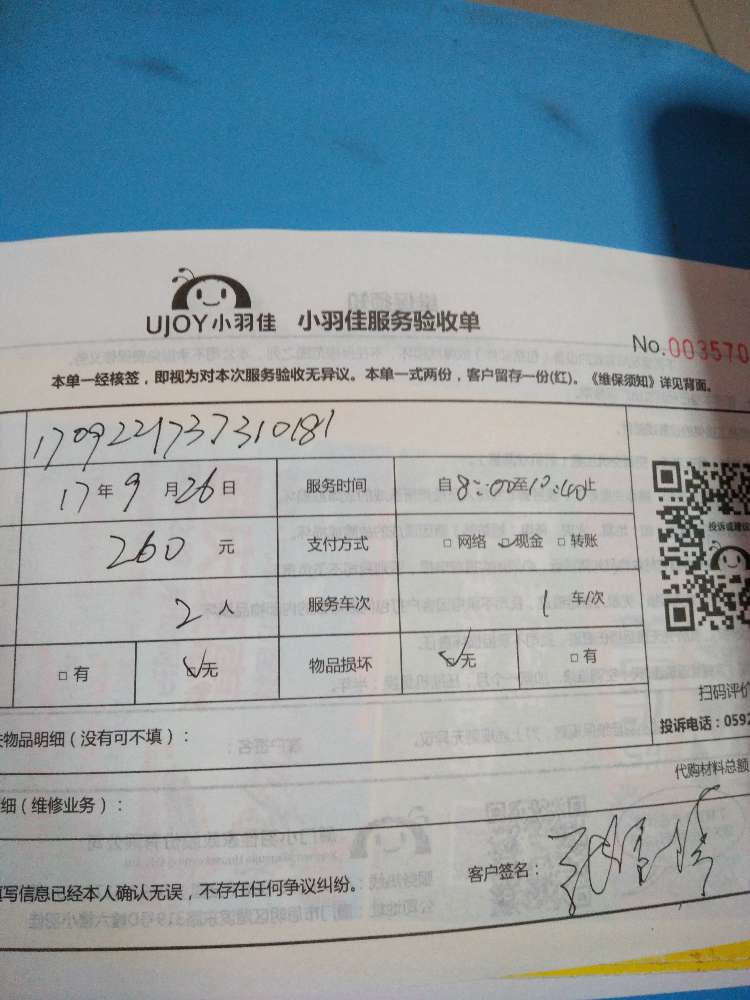 UJOY小羽佳 小羽佳服务验收单
No.003570
本单一经核签，即视为对本次服务验收无异议。本单一式两份，客户留存一份(红)。《维保须知》详见背面。
1709221737310181
17年9月26日 服务时间 自8:00至12:40止
260元 支付方式 □网络 □现金 □转账
投诉或建议
2人 服务车次 1车/次
□有 无 物品损坏 无 □有
扫码评价
物品明细（没有可不填）：
投诉电话：0592
代购材料总额
细（维修业务）：
填写信息已经本人确认无误，不存在任何争议纠纷。
客户签名：